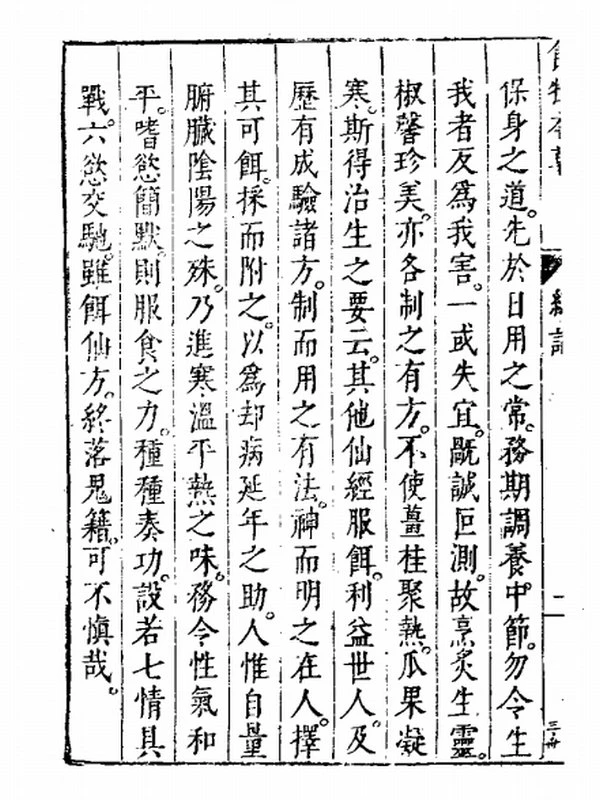 保身之道。先於日用之常。務期調養。中節。勿令生
我者反爲我害。一或失宜。厩誠叵測。故烹炙生靈。
椒馨珍美。亦各制之有方。不使薑桂聚熱。瓜果凝
寒。斯得治生之要云。其他仙經服餌。利益世人。及
歷有成驗諸方。制而用之有法。神而明之在人。擇
其可餌。採而附之。以爲却病延年之助。人惟自量
腑臟陰陽之殊。乃進寒溫平熱之味。務令性氣和
平。嗜慾簡默。則服食之力。種種奏功。設若七情具
戰。六慾交馳。雖餌仙方。終落鬼籍。可不慎哉。